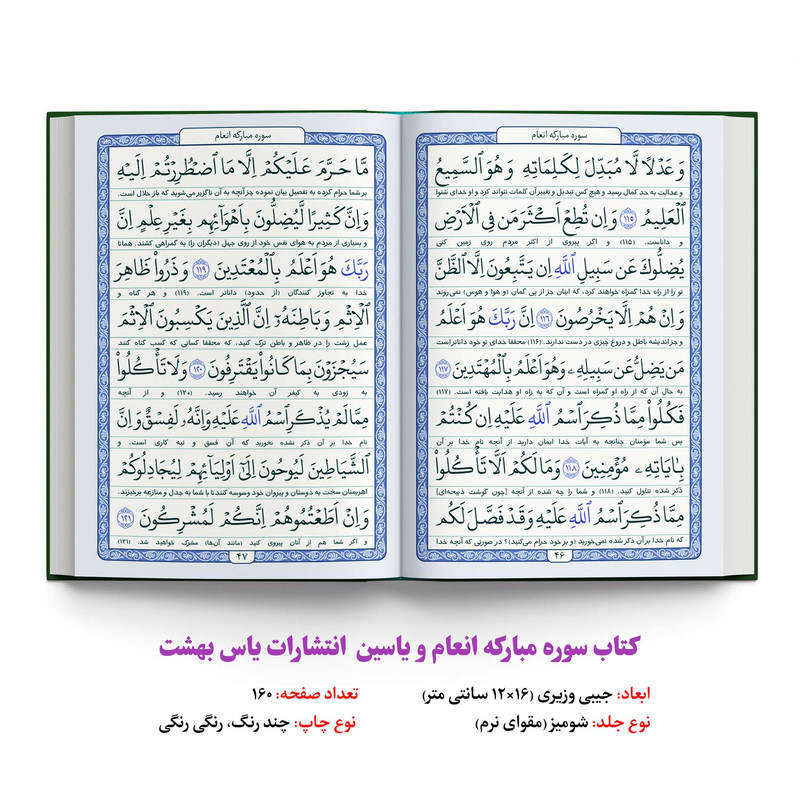 سوره مبارکه انعام
وَ عَدْلًا لَّا مُبَدِّلَ لِكَلِمَاتِهِ وَ هُوَ السَّمِيعُ
و عدالت به حد کمال رسید و هیچ کس تبدیل و تغییر آن کلمات نتواند کرد و او خدای شنوا
الْعَلِيمُ ﴿۱۱۵﴾ وَ اِن تُطِعْ اَكْثَرَ مَن فِي الْاَرْضِ
و داناست. (۱۱۵) و اگر پیروی از اکثر مردم روی زمین کنی
يُضِلُّوكَ عَن سَبِيلِ اللَّهِ اِن يَتَّبِعُونَ اِلَّا الظَّنَّ
تو را از راه خدا گمراه خواهند کرد، که اینان جز از پی گمان (و هوا و هوس) نمی‌روند
وَ اِنْ هُمْ اِلَّا يَخْرُصُونَ ﴿۱۱۶﴾ اِنَّ رَبَّكَ هُوَ اَعْلَمُ
و جز اندیشه باطل و دروغ چیزی در دست ندارند. (۱۱۶) محققا خدای تو خود داناتر است
مَن يَضِلُّ عَن سَبِيلِهِ وَ هُوَ اَعْلَمُ بِالْمُهْتَدِينَ ﴿۱۱۷﴾
به حال آن که از راه او گمراه است و آن که به راه او هدایت یافته است. (۱۱۷)
فَكُلُوا مِمَّا ذُكِرَ اسْمُ اللَّهِ عَلَيْهِ اِن كُنْتُمْ
پس شما مؤمنان چنانچه به آیات خدا ایمان دارید از آنچه نام خدا بر آن
بِاٰيَاتِهِ مُؤْمِنِينَ ﴿۱۱۸﴾ وَ مَا لَكُمْ اَلَّا تَأْكُلُوا
ذکر شده تناول کنید. (۱۱۸) و شما را چه شده از آنچه [چون گوشت ذبیحه‌ای]
مِمَّا ذُكِرَ اسْمُ اللَّهِ عَلَيْهِ وَ قَدْ فَصَّلَ لَكُم
که نام خدا بر آن ذکر شده نمی‌خورید (و بر خود حرام می‌کنید)؟ در صورتی که آنچه خدا
۴۶
سوره مبارکه انعام
مَّا حَرَّمَ عَلَيْكُمْ اِلَّا مَا اضْطُرِرْتُمْ اِلَيْهِ
بر شما حرام کرده به تفصیل بیان نموده جز آنچه به آن ناگزیر می‌شوید که باز حلال است.
وَ اِنَّ كَثِيرًا لَّيُضِلُّونَ بِاَهْوَآئِهِم بِغَيْرِ عِلْمٍ اِنَّ
و بسیاری از مردم به هوای نفس خود از روی جهل (دیگران را) به گمراهی کشند. همانا
رَبَّكَ هُوَ اَعْلَمُ بِالْمُعْتَدِينَ ﴿۱۱۹﴾ وَ ذَرُوا ظَاهِرَ
خدا به تجاوز کنندگان (از حدود) داناتر است. (۱۱۹) و هر گناه و
الْاِثْمِ وَ بَاطِنَهُ اِنَّ الَّذِينَ يَكْسِبُونَ الْاِثْمَ
عمل زشت را در ظاهر و باطن ترک کنید، که محققا کسانی که کسب گناه کنند
سَيُجْزَوْنَ بِمَا كَانُوا يَقْتَرِفُونَ ﴿۱۲۰﴾ وَ لَا تَأْكُلُوا
به زودی به کیفر آن خواهند رسید. (۱۲۰) و از آنچه
مِمَّا لَمْ يُذْكَرِ اسْمُ اللَّهِ عَلَيْهِ وَ اِنَّهُ لَفِسْقٌ وَ اِنَّ
نام خدا بر آن ذکر نشده نخورید که آن فسق و تبه کاری است. و
الشَّيَاطِينَ لَيُوحُونَ اِلَى اَوْلِيَآئِهِمْ لِيُجَادِلُوكُمْ
اهریمنان سخت به دوستان و پیروان خود وسوسه کنند تا با شما به جدل و منازعه برخیزند.
وَ اِنْ اَطَعْتُمُوهُمْ اِنَّكُمْ لَمُشْرِكُونَ ﴿۱۲۱﴾
و اگر شما هم از آنان پیروی کنید (مانند آن‌ها) مشرک خواهید شد. (۱۲۱)
۴۷
کتاب سوره مبارکه انعام و یاسین انتشارات یاس بهشت
ابعاد: جیبی وزیری (۱۶×۱۲ سانتی متر)
تعداد صفحه: ۱۶۰
نوع جلد: شومیز (مقوای نرم)
نوع چاپ: چند رنگ، رنگی رنگی